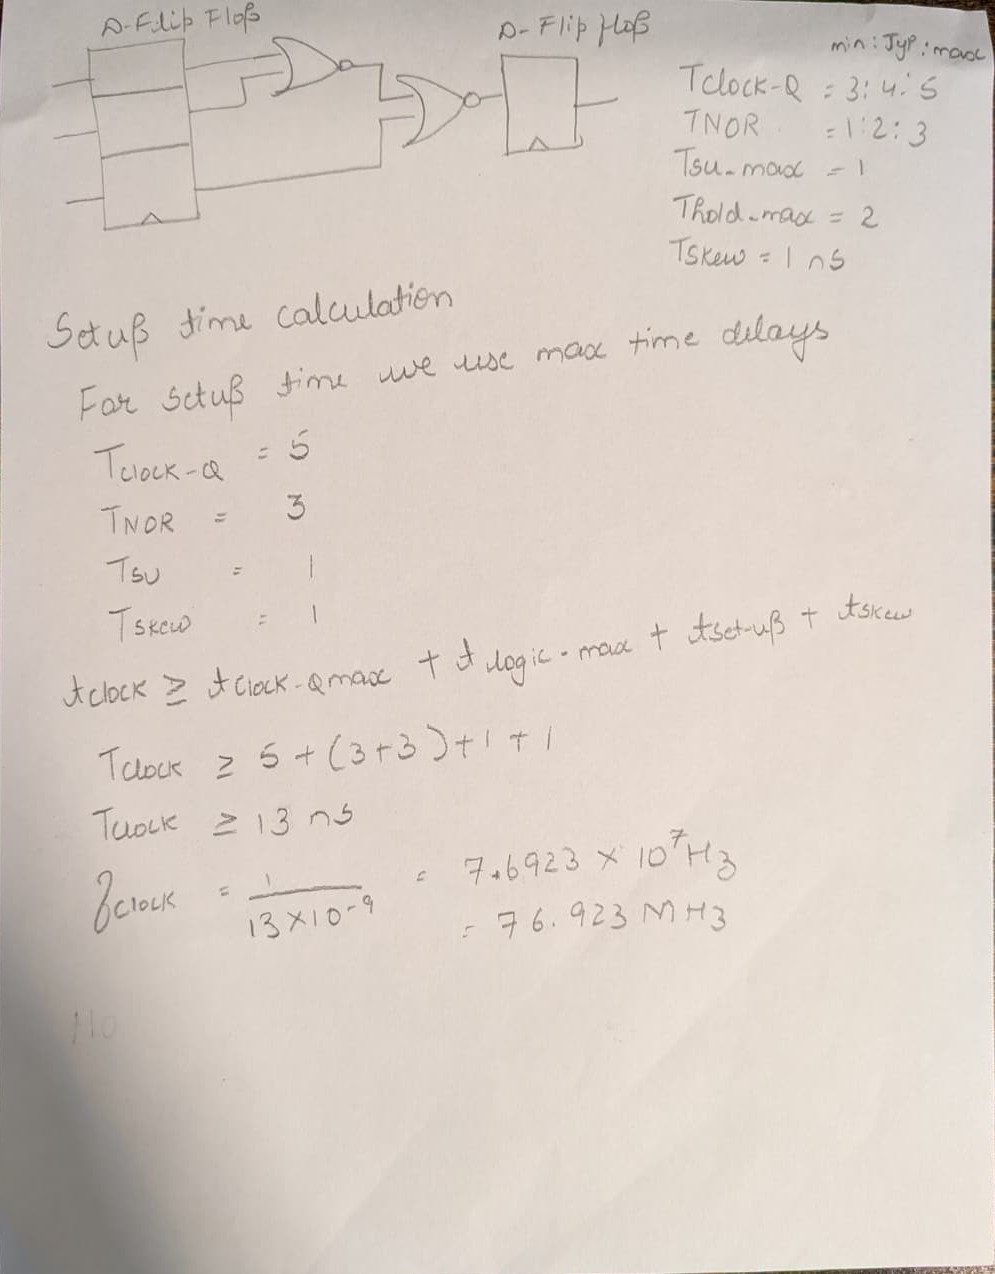 D-Flip Flop
D-Flip flop
min : Typ : max
Tclock-Q = 3: 4: 5
TNOR = 1:2:3
Tsu-max = 1
Thold-max = 2
Tskew = 1 ns
Setup time calculation
For setup time we use max time delays
Tclock-Q = 5
TNOR = 3
Tsu = 1
Tskew = 1
tclock ≥ tclock-Qmax + tlogic-max + tset-up + tskew
Tclock ≥ 5 + (3+3)+1+1
Tclock ≥ 13 ns
fclock = 1/13×10^-9 = 7.6923 × 10^7 Hz
= 76.923 MHz